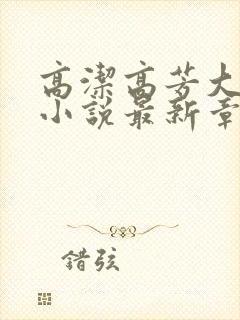 高潔高芳大
小說最新章
錯弦